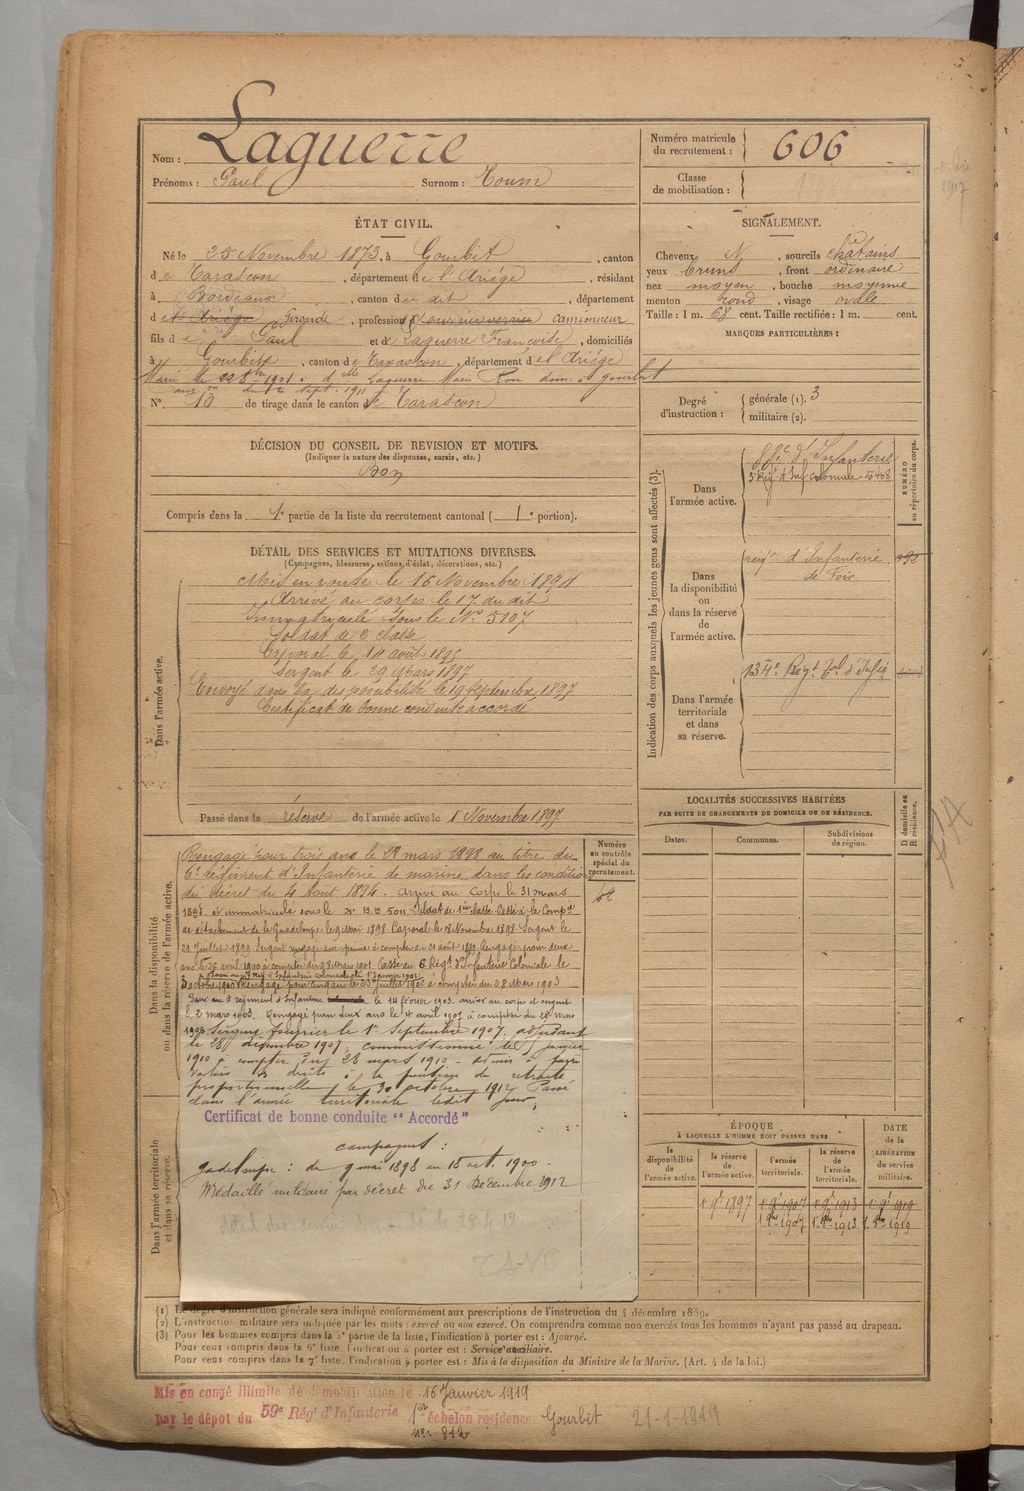 Nom : Laguerre
Prénoms : Paul Surnom : Toum
Numéro matricule du recrutement : 606
Classe de mobilisation :
ÉTAT CIVIL.
Né le 25 Novembre 1873, à Gourbit, canton
de Tarascon, département de l'Ariége, résidant
à Bordeaux, canton de dit, département
d Gironde, profession d camionneur
fils de Paul et de Laguerre Françoise, domiciliés
à Gourbit, canton de Tarascon, département de l'Ariége
N° 10 de tirage dans le canton de Tarascon
SIGNALEMENT.
Cheveux N, sourcils chatains
yeux bruns, front ordinaire
nez moyen, bouche moyenne
menton rond, visage ovale
Taille : 1 m. 68 cent. Taille rectifiée : 1 m. cent.
MARQUES PARTICULIÈRES :
Degré d'instruction : générale (1). 3
militaire (2).
DÉCISION DU CONSEIL DE REVISION ET MOTIFS.
(Indiquer la nature des dispenses, sursis, etc.)
Bon
Compris dans la 1e partie de la liste du recrutement cantonal ( 1e portion).
DÉTAIL DES SERVICES ET MUTATIONS DIVERSES.
(Campagnes, blessures, actions d'éclat, décorations, etc.)
Dans l'armée active.
Mis en route le 16 Novembre 1894
Arrivé au corps le 17 du dit
Immatriculé sous le No 5107
Soldat de 2e classe
Caporal le 14 août 1895
Sergent le 29 Mars 1897
Envoyé dans la disponibilité le 19 septembre 1897
Certificat de bonne conduite accordé
Passé dans la réserve de l'armée active le 1 Novembre 1897
Indication des corps auxquels les jeunes gens sont affectés (3).
NUMÉRO au répertoire du corps.
Dans l'armée active.
d'Infanterie
3e Regt d'Inf Coloniale
Dans la disponibilité ou dans la réserve de l'armée active.
regt d'Infanterie
de Foix
Dans l'armée territoriale et dans sa réserve.
134e Regt Tal d'Infie
LOCALITÉS SUCCESSIVES HABITÉES
PAR SUITE DE CHANGEMENTS DE DOMICILE OU DE RÉSIDENCE.
Dates. Communes. Subdivisions de région. D domicile ou R résidence.
Numéro au contrôle spécial du recrutement.
Dans la disponibilité ou dans la réserve de l'armée active.
Rengagé pour trois ans le 28 mars 1898 au titre du
6e régiment d'Infanterie de marine dans les conditions
du décret du 4 Août 1894. Arrivé au Corps le 31 mars
1898 et immatriculé sous le No 5011. Soldat de 1ère classe. Passé à la Compie
de détachement de la Guadeloupe le 9 Mai 1898. Caporal le 7 Novembre 1898. Sergent le
21 Juillet 1899. Sergent rengagé avec prime à compter du 21 août 1899. Rengagé pour deux
ans le 26 avril 1900 à compter du 28 Mars 1901. Passé au 6 Régt d'Infanterie Coloniale le
3 octobre 1900. Rengagé pour cinq ans le 23 juillet 1902 à compter du 28 Mars 1903
Passé au 3 régiment d'Infanterie le 14 février 1903. arrivé au corps et sergent
le 2 mars 1903. Rengagé pour deux ans le 4 avril 1907 à compter du 28 mars
1908 Sergent fourrier le 1er Septembre 1907. adjudant
le 28 décembre 1907; commissionné le janvier
1910 à compter du 28 mars 1910 - admis à faire
valoir ses droits à la pension de retraite
proportionnelle le 30 octobre 1912 Passé
dans l'armée territoriale ledit jour;
Certificat de bonne conduite "Accordé"
Dans l'armée territoriale et dans sa réserve.
campagnes :
Guadeloupe : du 9 mai 1898 au 15 oct. 1900.
Médaillé militaire par décret du 31 Décembre 1912
ÉPOQUE
À LAQUELLE L'HOMME DOIT PASSER DANS
DATE de la LIBÉRATION du service militaire.
la disponibilité de l'armée active. la réserve de l'armée active. l'armée territoriale. la réserve de l'armée territoriale.
1 9e 1897 1 9e 1907 1 9e 1913 1 9e 1919
1 8bre 1907 1 8bre 1913 1 8bre 1919
(1) Le degré d'instruction générale sera indiqué conformément aux prescriptions de l'instruction du 4 décembre 1889.
(2) L'instruction militaire sera indiquée par les mots : exercé ou non exercé. On comprendra comme non exercés tous les hommes n'ayant pas passé au drapeau.
(3) Pour les hommes compris dans la 5e partie de la liste, l'indication à porter est : Ajourné.
Pour ceux compris dans la 6e liste, l'indication à porter est : Service auxiliaire.
Pour ceux compris dans la 7e liste, l'indication à porter est : Mis à la disposition du Ministre de la Marine. (Art. 4 de la loi.)
Mis en congé illimité de démobilisation le 16 Janvier 1919
par le dépot du 59e Régt d'Infanterie 1er échelon résidence Gourbit 21-1-1919
No: 812